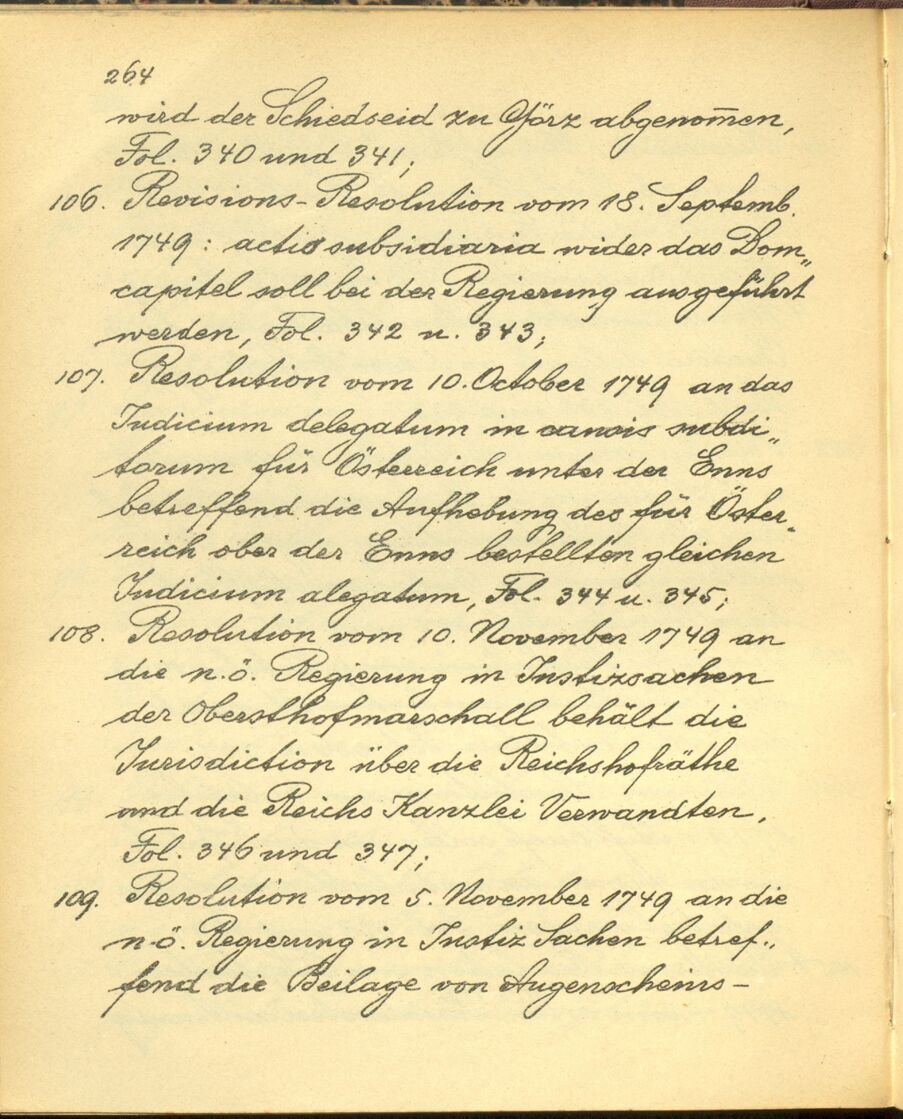 264
wird der Schiedseid zu Görz abgenom̅en,
Fol. 340 und 341;
106. Revisions-Resolution vom 18. Septemb.
1749: actio subsidiaria wider das Dom„
capitel soll bei der Regierung ausgeführt
werden, Fol. 342 u. 343;
107. Resolution vom 10. October 1749 an das
Judicium delegatum in causis subdi„
torum für Österreich unter der Enns
betreffend die Aufhebung des für Öster„
reich ober der Enns bestellten gleichen
Judicium alegatum, Fol. 344 u. 345;
108. Resolution vom 10. November 1749 an
die n.ö. Regierung in Justizsachen
der Obersthofmarschall behält die
Jurisdiction über die Reichshofräthe
und die Reichs Kanzlei Verwandten,
Fol. 346 und 347;
109. Resolution vom 5. November 1749 an die
n.ö. Regierung in Justiz Sachen betref„
fend die Beilage von Augenscheins-